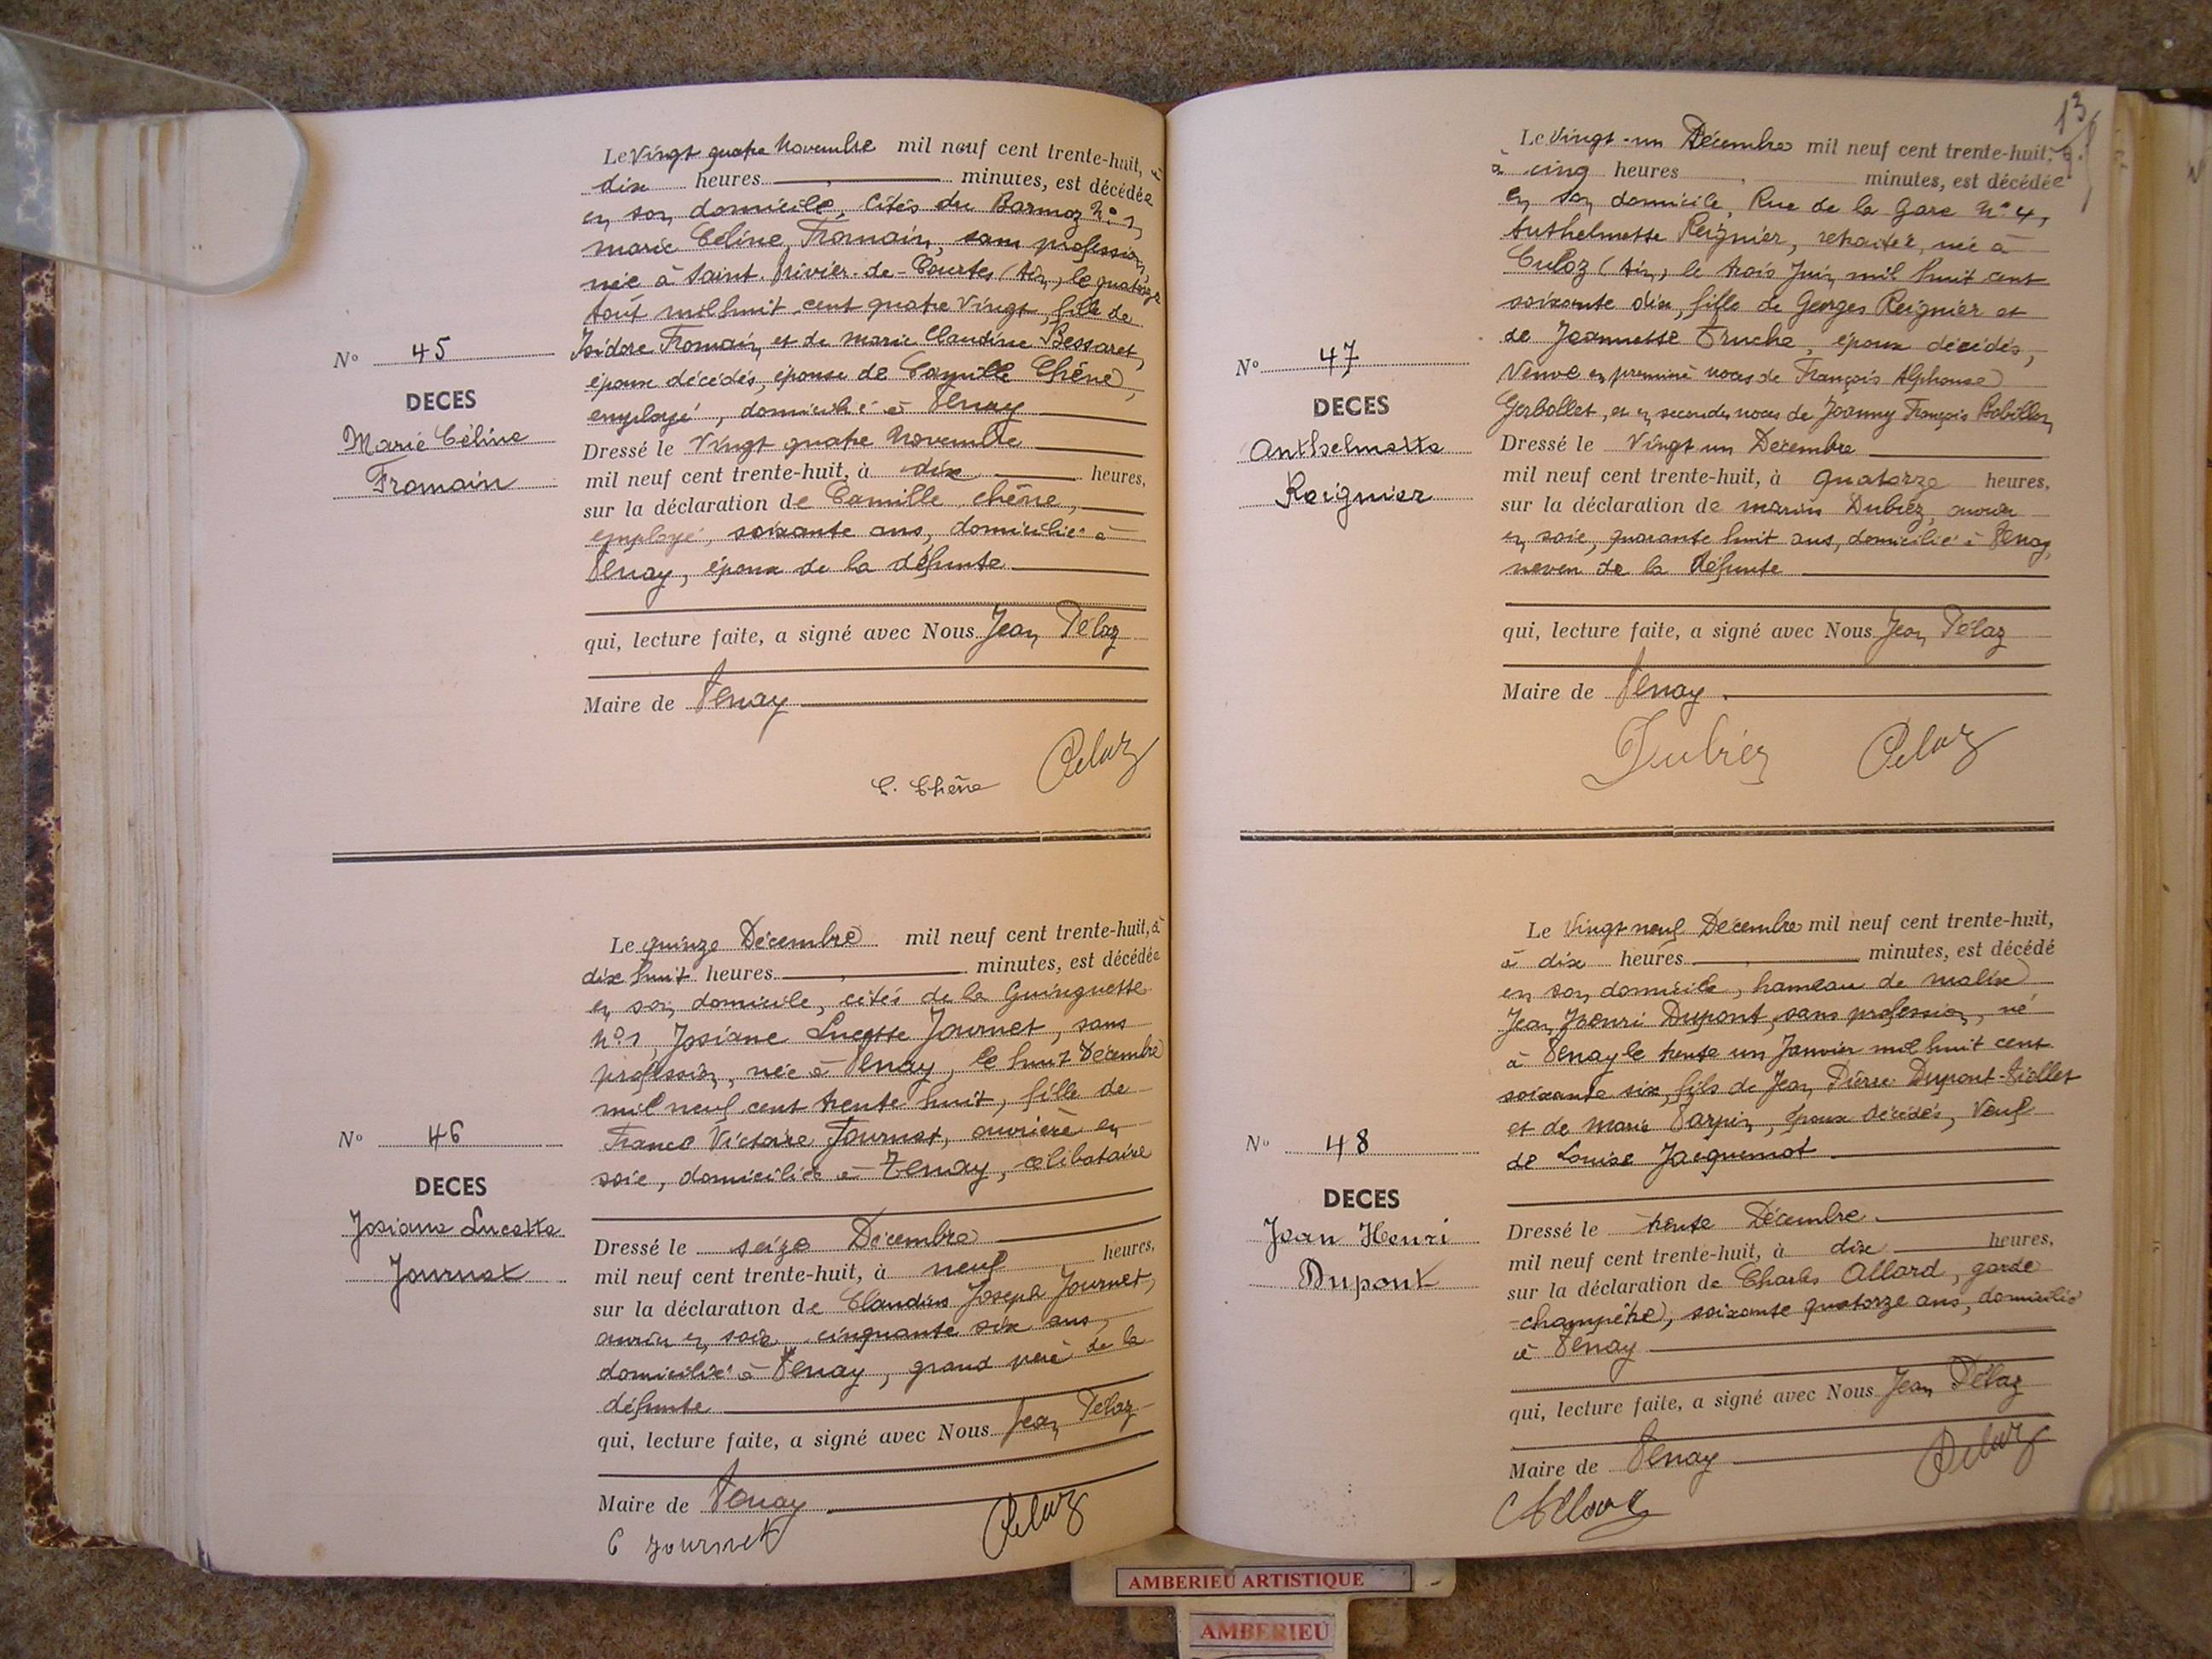 Le Vingt quatre Novembre mil neuf cent trente-huit, à
dix heures minutes, est décédée
en son domicile, Cités du Barmoz N° 1,
Marie Céline Fromain, sans profession,
née à Saint-Trivier-de-Courtes (Ain), le quatorze
Août mil huit cent quatre Vingt, fille de
Isidore Fromain et de Marie Claudine Bessaret,
époux décédés, épouse de Camille Chêne,
employé, domicilié à Tenay
N° 45
DECES
Marie Céline
Fromain
Dressé le Vingt quatre Novembre
mil neuf cent trente-huit, à dix heures,
sur la déclaration de Camille Chêne,
employé, soixante ans, domicilié à
Tenay, époux de la défunte
qui, lecture faite, a signé avec Nous Jean Pélaz
Maire de Tenay
C. Chêne Pelaz
Le quinze Décembre mil neuf cent trente-huit, à
dix huit heures minutes, est décédée
en son domicile, cités de la Guinguette
N° 1, Josiane Lucette Journet, sans
profession, née à Tenay, le huit Décembre
mil neuf cent trente huit, fille de
France Victoire Journet, ouvrière en
soie, domiciliée à Tenay, célibataire
N° 46
DECES
Josiane Lucette
Journet
Dressé le seize Décembre
mil neuf cent trente-huit, à neuf heures,
sur la déclaration de Claudius Joseph Journet,
ouvrier en soie, cinquante six ans,
domicilié à Tenay, grand père de la
défunte
qui, lecture faite, a signé avec Nous Jean Pélaz
Maire de Tenay
C Journet Pelaz
13
Le Vingt-un Décembre mil neuf cent trente-huit,
à cinq heures minutes, est décédée
en son domicile, Rue de la Gare N° 4,
Anthelmette Reignier, retraitée, née à
Culoz (Ain) le trois Juin mil huit cent
soixante dix, fille de Georges Reignier et
de Jeannette Truche, époux décédés,
Veuve en premières noces de François Alphonse
Gerbollet, et en secondes noces de Joanny François Bobillon
N° 47
DECES
Anthelmette
Reignier
Dressé le Vingt un Décembre
mil neuf cent trente-huit, à quatorze heures,
sur la déclaration de Marius Dubiez, ouvrier
en soie, quarante huit ans, domicilié à Tenay,
neveu de la défunte
qui, lecture faite, a signé avec Nous Jean Pélaz
Maire de Tenay
Dubiez Pelaz
Le Vingt neuf Décembre mil neuf cent trente-huit,
à dix heures minutes, est décédé
en son domicile, hameau de Malix
Jean Henri Dupont, sans profession, né
à Tenay le trente un Janvier mil huit cent
soixante six, fils de Jean Pierre Dupont-Tiollet
et de Marie Tarpin, époux décédés, Veuf
de Louise Jacquemot
N° 48
DECES
Jean Henri
Dupont
Dressé le trente Décembre
mil neuf cent trente-huit, à dix heures,
sur la déclaration de Charles Allard, garde
-champêtre, soixante quatorze ans, domicilié
à Tenay
qui, lecture faite, a signé avec Nous Jean Pélaz
Maire de Tenay Pelaz
C Allard
AMBERIEU ARTISTIQUE
AMBERIEU